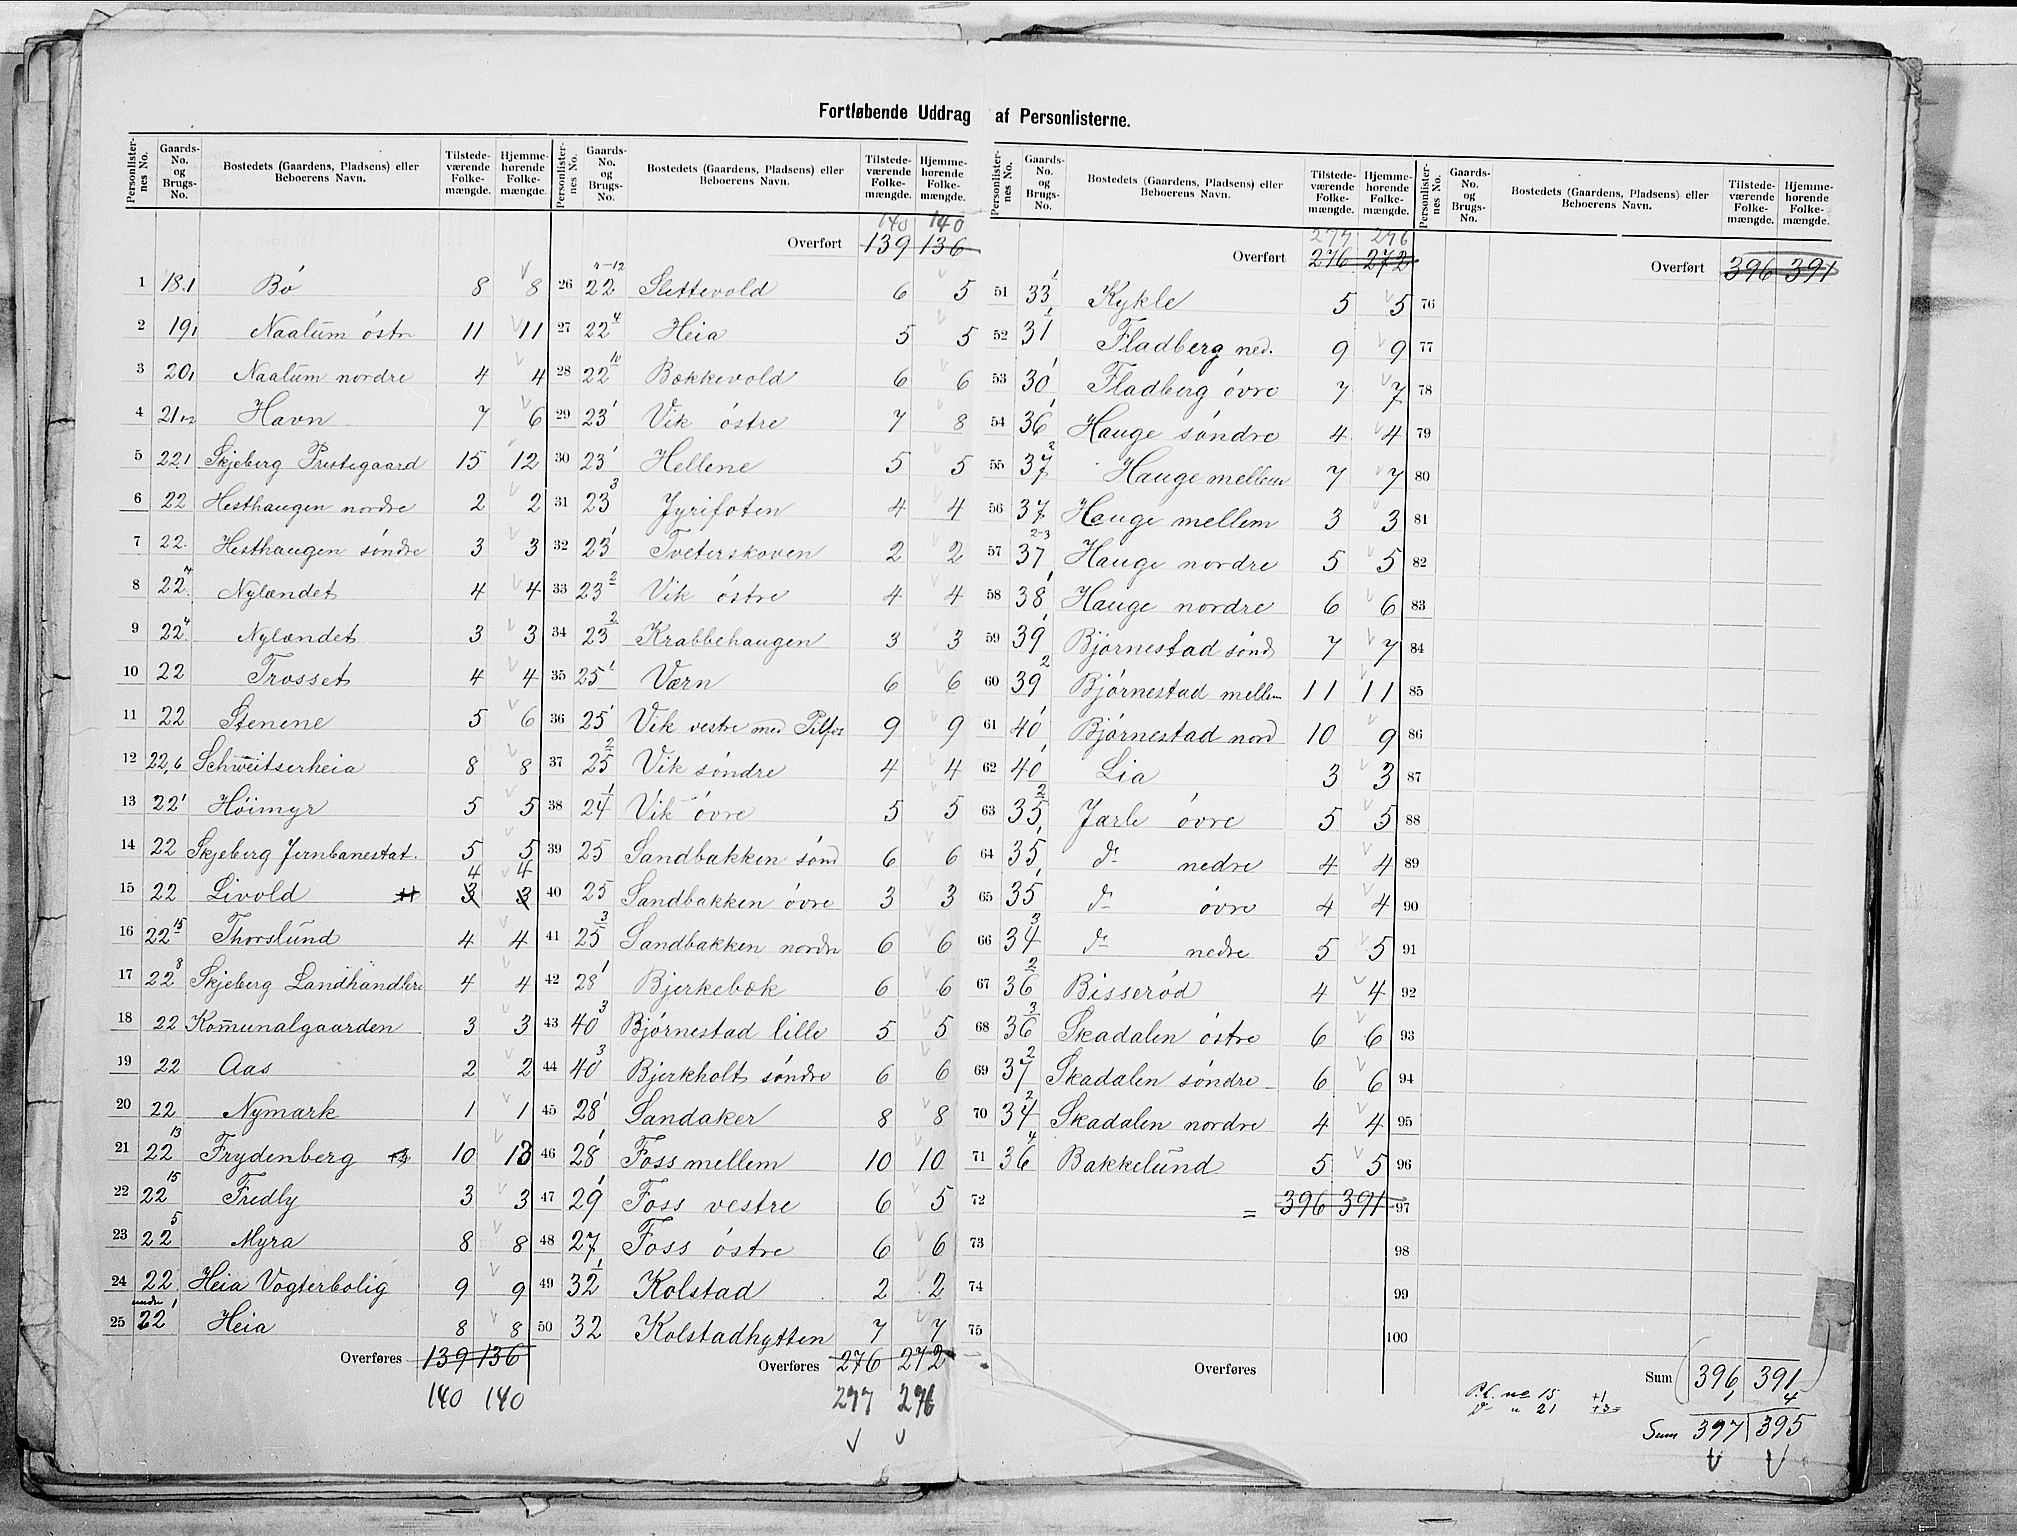 Fortløbende Uddrag af Personlisterne.
Personlisternes No. Gaards-No. og Brugs-No. Bostedets (Gaardens, Pladsens) eller Beboerens Navn. Tilstedeværende Folkemængde. Hjemmehørende Folkemængde.
1 18.1 Bö 8 8
2 19,1 Naalum östr 11 11
3 20,1 Naalum nordre 4 4
4 21 1-2 Havn 7 6
5 22,1 Skjeberg Prestegaard 15 12
6 22 Hesthaugen nordre 2 2
7 22. Hesthaugen söndre 3 3
8 22 7 Nylændet 4 4
9 22 4 Nylændet 3 3
10 22 Trosset 4 4
11 22 Stenene 5 6
12 22,6 Schweitserheia 8 8
13 22 1 Höimyr 5 5
14 22 Skjeberg Jernbanestat. 5 5
4 4
15 22 Livold +1 3 3
16 22 15 Thorslund 4 4
17 22 8 Skjeberg Landhandleri 4 4
18 22 Kommunalgaarden 3 3
19 22 Aas 2 2
20 22 Nymark 1 1
21 22 13 Frydenberg +3 10 13
22 22 15 Fredly 3 3
23 22 5 Myra 8 8
24 22 Heia Vogterbolig 9 9
25 22 1 Heia 8 8
Overføres 139 136
140 140
Personlisternes No. Gaards-No. og Brugs-No. Bostedets (Gaardens, Pladsens) eller Beboerens Navn. Tilstedeværende Folkemængde. Hjemmehørende Folkemængde.
140 140
Overført 139 136
26 22 Slettevold 6 5
27 22 4 Heia 5 5
28 22 10 Bækkevold 6 6
29 23 1 Vik östre 7 8
30 23 1 Hellene 5 5
31 23 3 Jyrifoten 4 4
32 23 1 Tveterskoven 2 2
33 23 2 Vik östre 4 4
34 23 2 Krabbehaugen 3 3
35 25 1 Værn 6 6
36 25 1 Vik vestre med Pilfos 9 9
37 25 2 Vik söndre 4 4
38 24 1 Vik övre 5 5
39 25 Sandbakken sönd 6 6
40 25 Sandbakken övre 3 3
41 25 3 Sandbakken nordre 6 6
42 28 1 Bjerkebæk 6 6
43 40 3 Björnestad lille 5 5
44 40 3 Bjerkholt söndre 6 6
45 28 1 Sandaker 8 8
46 28 1 Foss mellem 10 10
47 29 1 Foss vestre 6 5
48 27 Foss östre 6 6
49 32 1 Kolstad 2 2
50 32 Kolstadhytten 7 7
Overføres 276 272
277 276
Personlisternes No. Gaards-No. og Brugs-No. Bostedets (Gaardens, Pladsens) eller Beboerens Navn. Tilstedeværende Folkemængde. Hjemmehørende Folkemængde.
277 276
Overført 276 272
51 33 1 Kykle 5 5
52 31 1 Fladberg ned. 9 9
53 30 1 Fladberg övre 7 7
54 36 1 Hauge söndre 4 4
55 37 2 Hauge mellem 7 7
56 37 Hauge mellem 3 3
57 37 2-3 Hauge nordre 5 5
58 38 1 Hauge nordre 6 6
59 39 1 Björnestad sönd 7 7
60 39 2 Björnestad mellem 11 11
61 40 1 Björnestad nord 10 9
62 40 1 Lia 3 3
63 35 2 Jarle övre 5 5
64 35 1 do nedre 4 4
65 35 1 do övre 4 4
66 34 3 do nedre 5 5
67 36 2 Bisseröd 4 4
68 36 3 Skadalen östre 6 6
69 37 2 Skadalen söndre 6 6
70 34 2 Skadalen nordre 4 4
71 36 4 Bakkelund 5 5
72 = 396 391
73
74
75
Overføres
Personlisternes No. Gaards-No. og Brugs-No. Bostedets (Gaardens, Pladsens) eller Beboerens Navn. Tilstedeværende Folkemængde. Hjemmehørende Folkemængde.
Overført 396 391
76
77
78
79
80
81
82
83
84
85
86
87
88
89
90
91
92
93
94
95
96
97
98
99
100
Sum (396 391)
P.l. no 15 +1 1 4
do " 21 +3
Sum 397 395